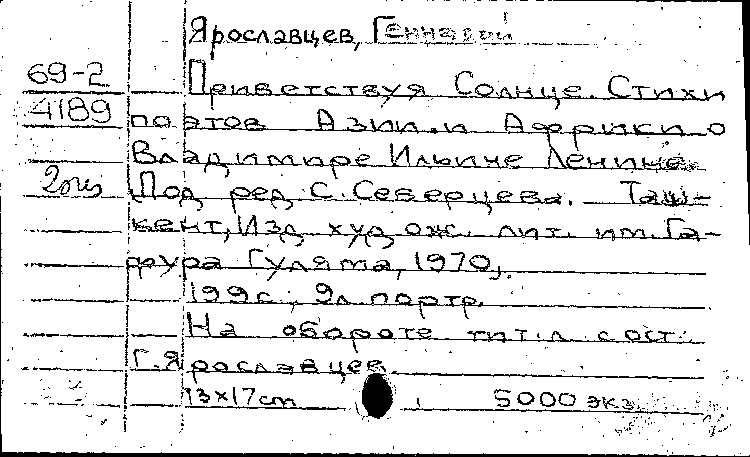 Ярославцев, Геннадий
69-2
Приветствуя Солнце. Стихи
4189
поэтов Азии и Африки о
Владимире Ильиче Ленине.
2экз
Под ред. С. Северцева. Таш-
кент, Изд. худож. лит. им. Га-
фура Гуляма, 1970.
199с., 9л. портр.
На обороте тит. л. сост.:
Г. Ярославцев.
13x17cm 5000 экз.